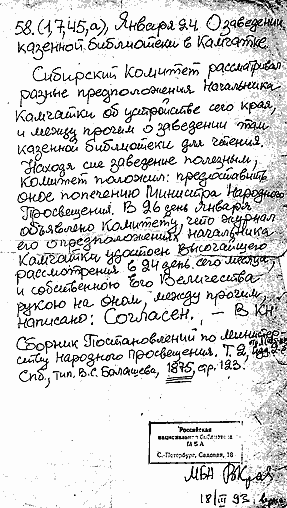 58. (1,745,а), Января 24. О заведении
казенной библиотеки в Камчатке.
Сибирский Комитет рассматривал
разные предположения Начальника
Камчатки об устройстве сего края,
и между прочим о заведении там
казенной библиотеки для чтения.
Находя сие заведение полезным,
Комитет положил: предоставить
оное попечению Министра Народного
Просвещения. В 26 день Января
объявлено Комитету, что журнал
его о предположениях начальника
Камчатки удостоен Высочайшего
рассмотрения в 24 день сего месяца,
и собственною Его Величества
рукою на оном, между прочим,
написано: Согласен. – В кн:
Сборник Постановлений по Министер-
ству Народного Просвещения. Т. 2,
Спб., тип. В.С. Балашева, 1875, стр. 123.
Российская
национальная библиотека
МБА
С.-Петербург, Садовая, 18
МБА
18/III 93.